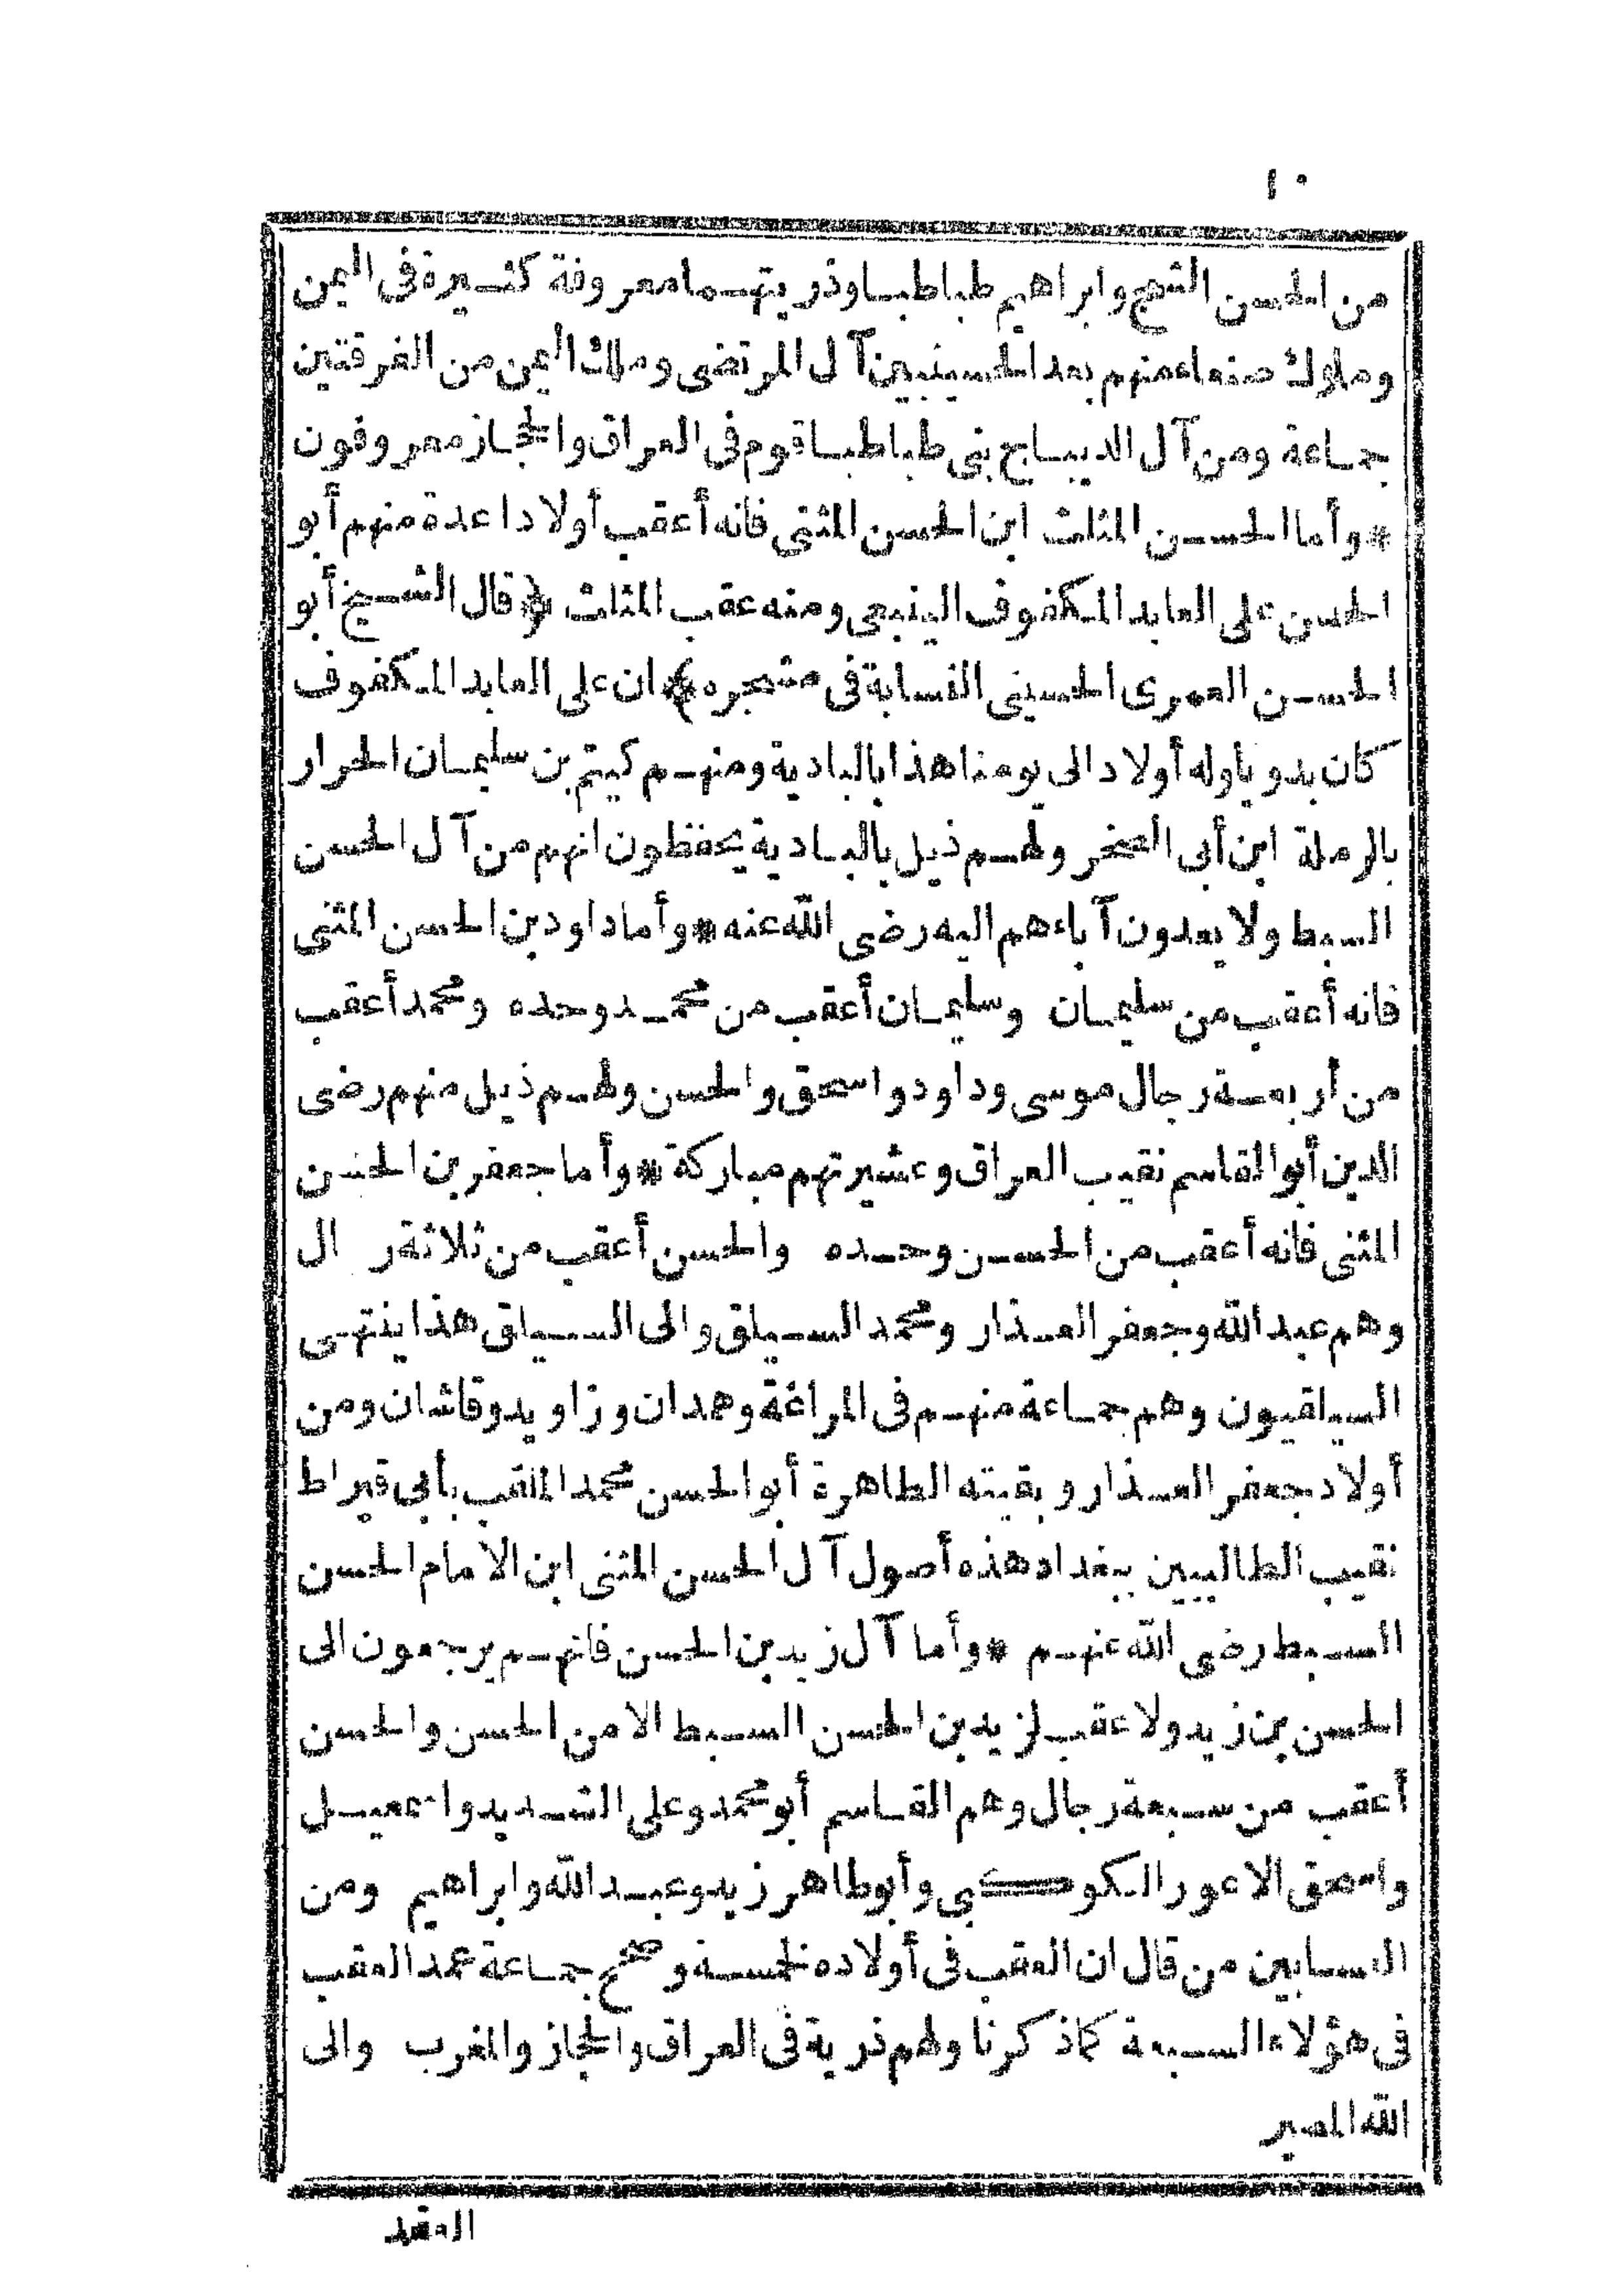 ٤٠
من الحسن التج وابراهيم طباطبا وذريتهما معروفة كثيرة فى اليمن
وملوك صنعاء منهم بعد الحسينيين آل المرتضى وملاك اليمن من الفرقتين
جماعة ومن آل الديباج بنى طباطبا قوم فى العراق والحجاز معروفون
* وأما الحسن المثلث ابن الحسن المثنى فانه أعقب أولادا عدة منهم أبو
الحسن على العابد المكفوف الينبعى ومنه عقب المثلث ﴿قال الشيخ أبو
الحسن العمرى الحسينى النسابة فى مشجره﴾ ان على العابد المكفوف
كان بدويا وله أولاد الى يومنا هذا بالبادية ومنهم كيتم بن سليمان الحرار
بالرملة ابن أبى الصخر ولهم ذيل بالبادية يحفظون انهم من آل الحسن
السبط ولا يعدون آباءهم اليه رضى الله عنه * وأما داود بن الحسن المثنى
فانه أعقب من سليمان وسليمان أعقب من محمد وحده ومحمد أعقب
من أربعة رجال موسى وداود واسحق والحسن ولهم ذيل منهم رضى
الدين أبو القاسم نقيب العراق وعشيرتهم مباركة * وأما جعفر بن الحسن
المثنى فانه أعقب من الحسن وحده والحسن أعقب من ثلاثة ر ال
وهم عبد الله وجعفر الغدار ومحمد السيلق والى السيلق هذا ينتهى
السيلقيون وهم جماعة منهم فى المراغة وهمدان وزاويد وقاشان ومن
أولاد جعفر الغدار وبقيته الطاهرة أبو الحسن محمد الملقب بأبى قيراط
نقيب الطالبيين ببغداد هذه أصول آل الحسن المثنى ابن الامام الحسن
السبط رضى الله عنهم * وأما آل زيد بن الحسن فانهم يرجعون الى
الحسن بن زيد ولا عقب لزيد بن الحسن السبط الا من الحسن والحسن
أعقب من سبعة رجال وهم القاسم أبو محمد وعلى الشديد واسمعيل
واسحق الاعور الكوكبى وأبو طاهر زيد وعبد الله وابراهيم ومن
النسابين من قال ان العقب فى أولاده خمسة وصحح جماعة عمد العقب
فى هؤلاء السبعة كماذكرنا ولهم ذرية فى العراق والحجاز والمغرب والى
الله المصير
العقد